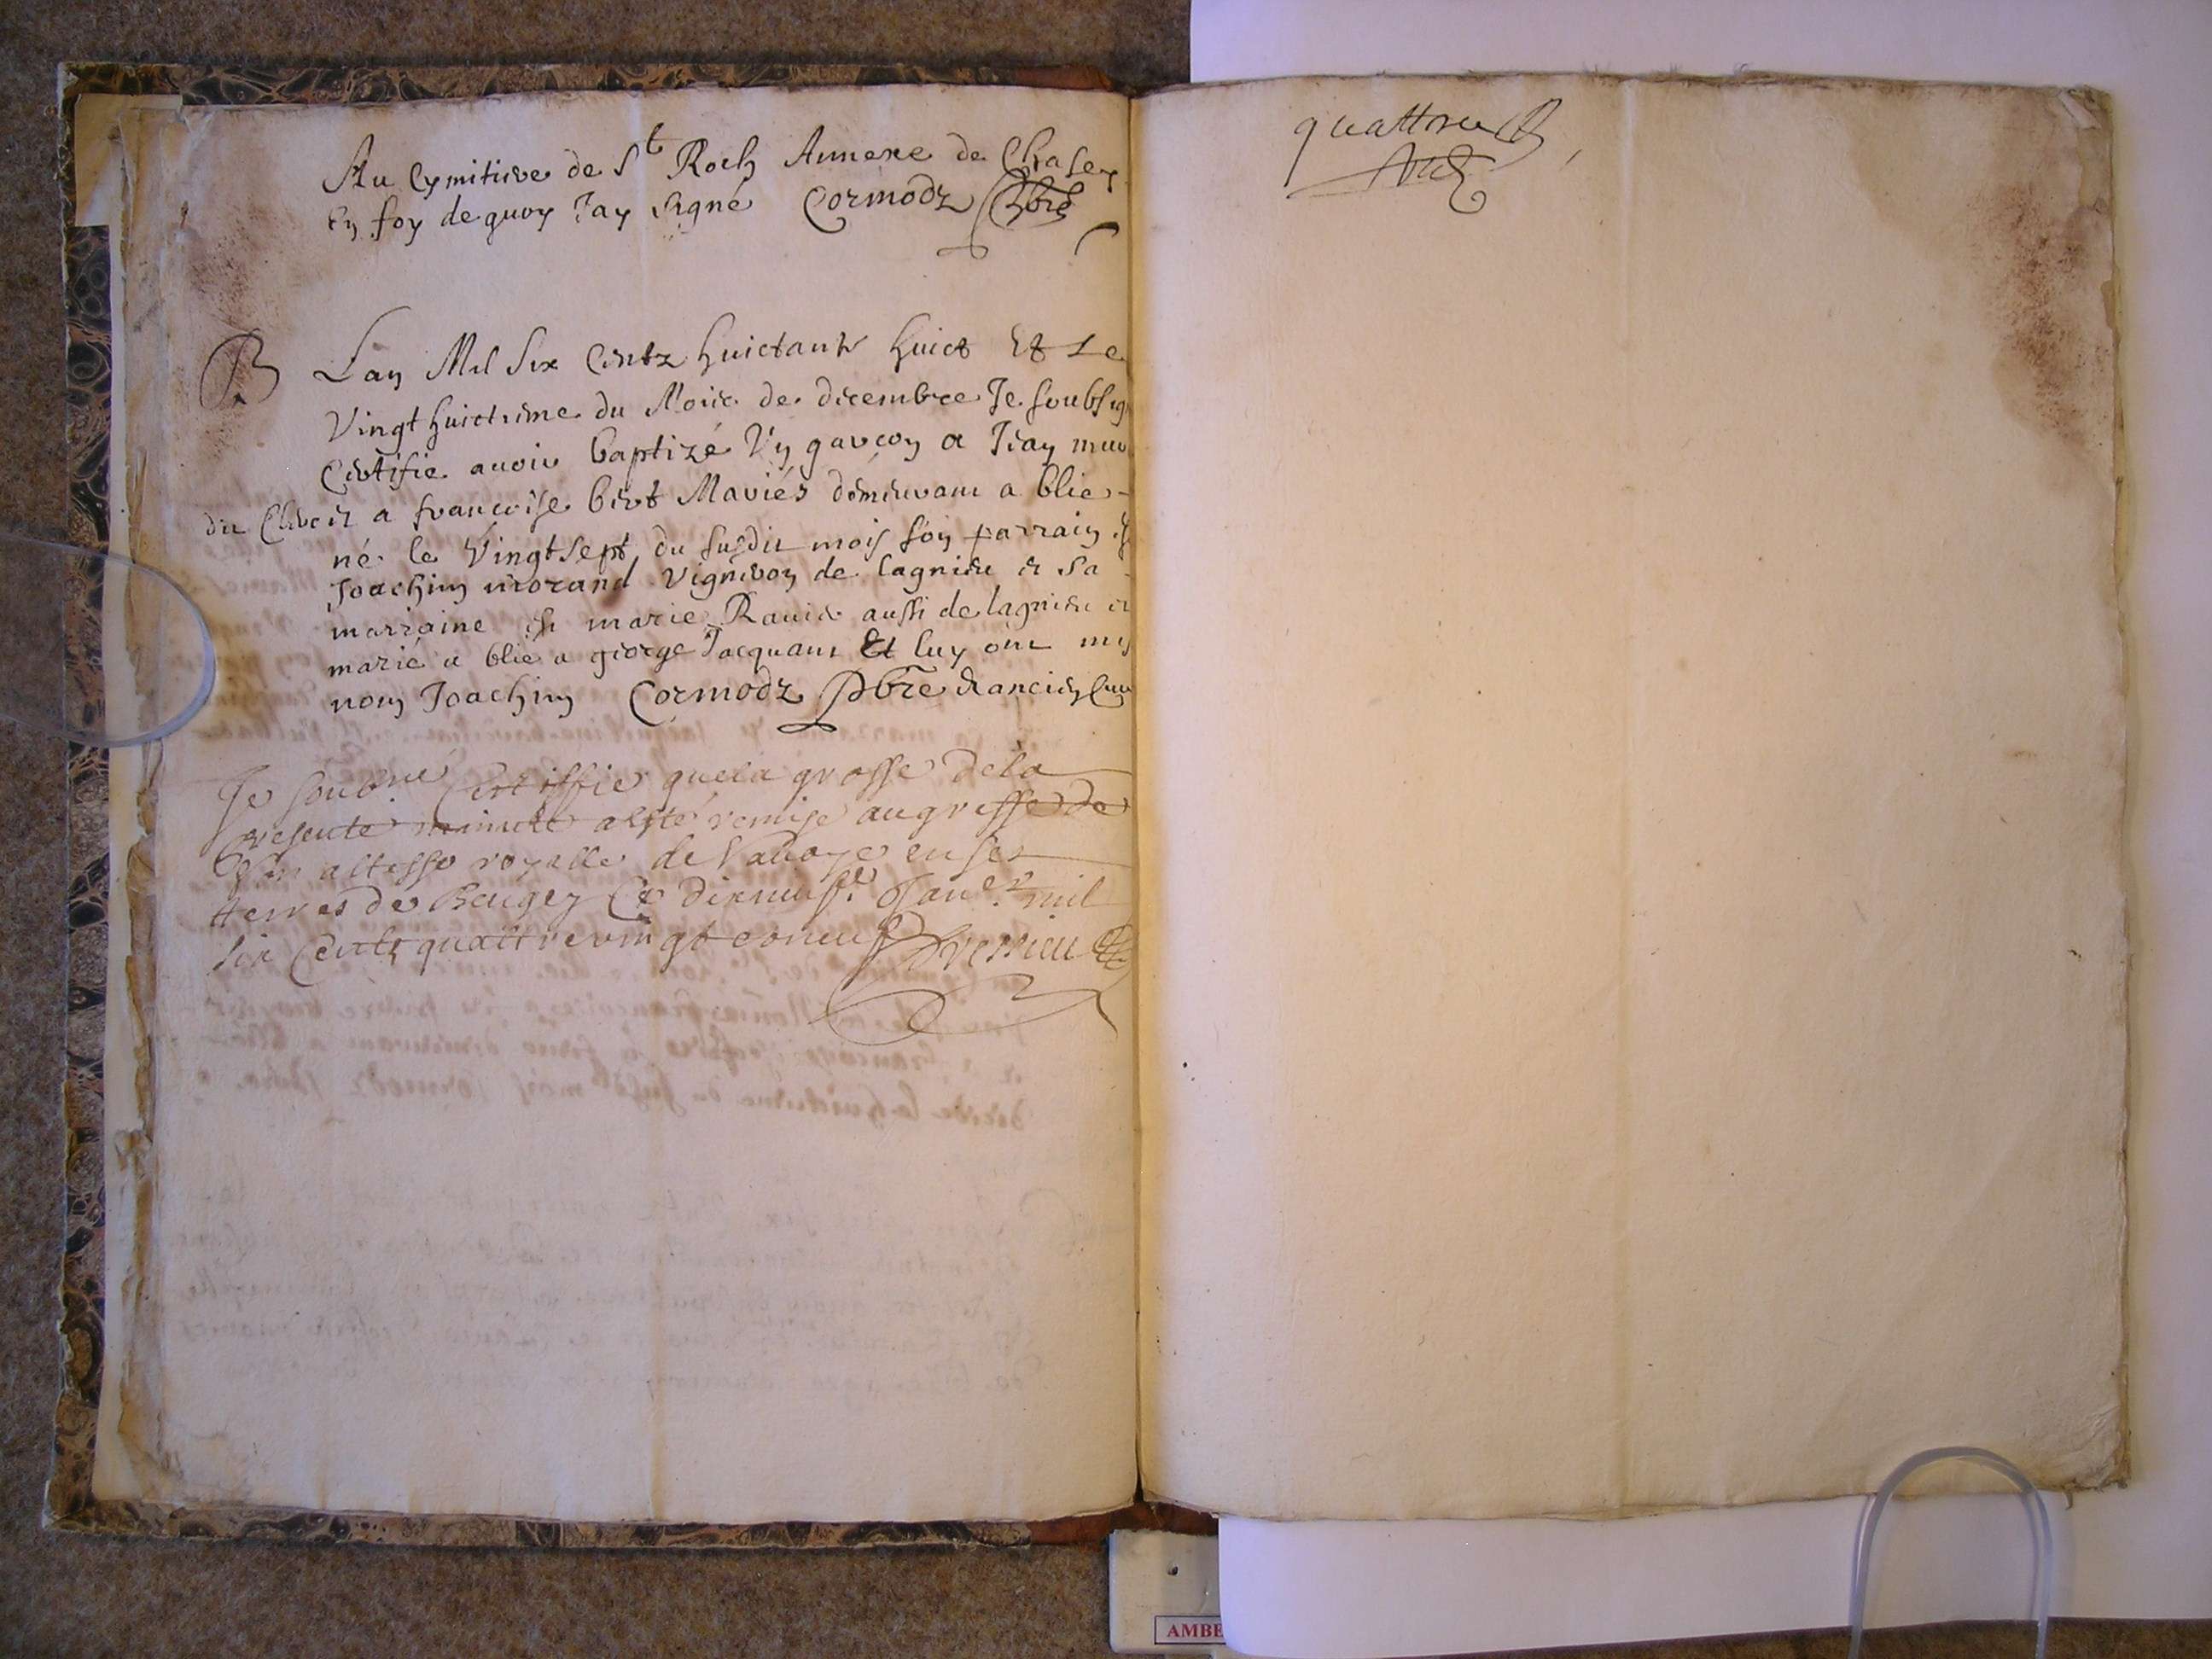 Au Cymitiere de St Roch Annexe de Chasey
En foy de quoy Jay signé Cormodz Pbre
B
Lan Mil Six Centz huictante huict Et Le
Vingt huictieme du Moies de decembre Je soubsig
Certifie auoir baptizé Vn garcon a Jean
du Chver et a francoise bert Mariés demeurant a blie
né le Vingt sept du susdit mois son parrain est
Joachim morand Vigneron de lagnieu et sa
marraine est marie Rauie aussi de lagnieu et
marié a blie a george Jacquant Et luy ont mis
nom Joachim Cormodz Pbre & ancien Curé
Je soubné Certiffie que la grosse de la
presente minutte a esté remise au greffe de
son altesse royalle de Sauoye en ses
terres de Beugey Ce dixneufe Janer mil
six Cents quattrevingt e neuf
quattre
AMBE